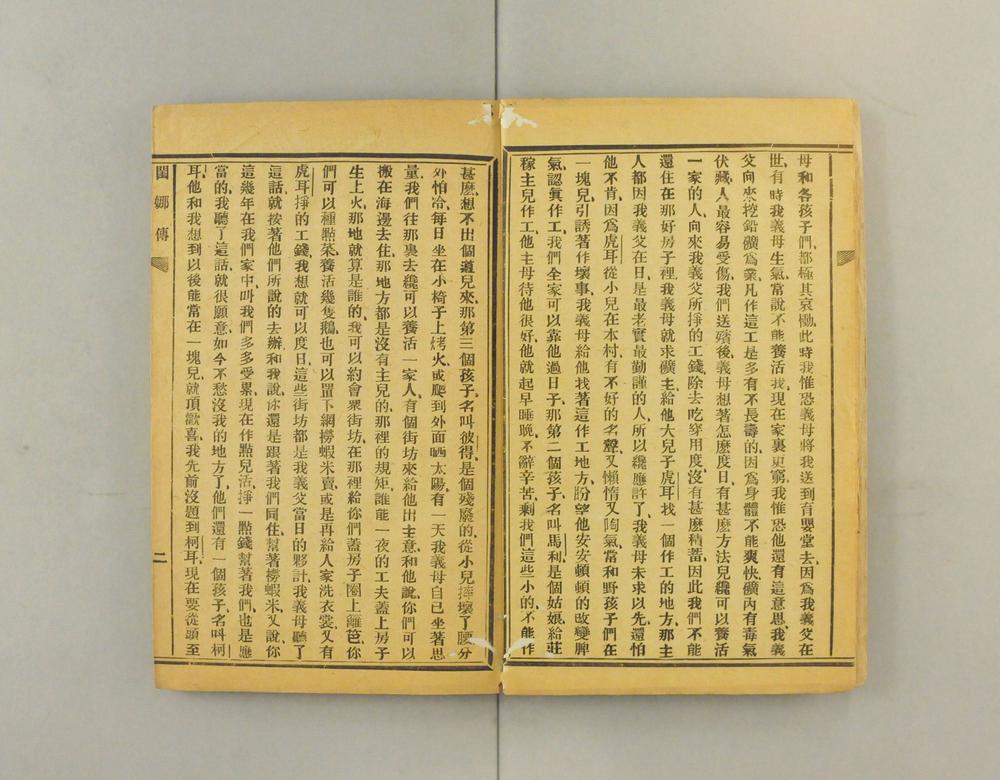 母和各孩子們、都極其哀慟、此時我惟恐義母將我送到育嬰堂去、因爲我義父在
世、有時我義母生氣、常說不能養活我、現在家裏更窮、我惟恐他還有這意思、我義
父向來挖鉛鑛爲業、凡作這工、是多有不長壽的、因爲身體不能爽快、鑛內有毒氣
伏藏、人最容易受傷、我們送殯後、義母想著怎麽度日、有甚麽方法兒、纔可以養活
一家的人、向來我義父所掙的工錢、除去吃穿用度、沒有甚麽積蓄、因此我們不能
還住在那好房子裡、我義母就求鑛主、給他大兒子虎耳、找一個作工的地方、那主
人都因我義父在日、是最老實最勤謹的人、所以纔應許了、我義母未求以先、還怕
他不肯、因爲虎耳從小兒在本村、有不好的名聲、又懶惰又陶氣、常和野孩子們在
一塊兒、引誘著作壞事、我義母給他找著這作工地方、盼望他安安頓頓的改變脾
氣、認眞作工、我們全家可以靠他過日子、那第二個孩子、名叫馬利、是個姑娘、給莊
稼主兒作工、他主母待他很好、他就起早睡晩、不辭辛苦、剩我們這些小的、不能作
甚麽、想不出個遭兒來、那第三個孩子、名叫彼得、是個殘廢的、從小兒摔壞了腰、分
外怕冷、每日坐在小椅子上烤火、或爬到外面晒太陽、有一天我義母自已坐著思
量、我們往那裏去、纔可以養活一家人、有個街坊來給他出主意、和他說、你們可以
搬在海邊去住、那地方都是沒有主兒的、那裡的規矩、誰能一夜的工夫蓋上房子
生上火、那地就算是誰的、我可以約會衆街坊、在那裡給你們蓋房子、圈上籬笆、你
們可以種點菜、養活幾隻鵝、也可以留下網、撈蝦米賣、或是再給人家洗衣裳、又有
虎耳掙的工錢、我想就可以度日、這些街坊都是我義父當日的夥計、我義母聽了
這話、就按著他們所說的去辦、和我說、你還是跟著我們同住、幫著撈蝦米、又說、你
這幾年在我們家中、叫我們多多受累、現在作點兒活、掙一點錢、幫著我們、也是應
當的、我聽了這話、就很願意、如今不愁沒我的地方了、他們還有一個孩子、名叫柯
耳、他和我想到以後能當在一塊兒、就頂歡喜、我先前沒題到柯耳、現在要從頭至
閨娜傳
二